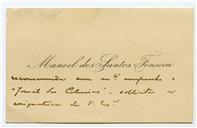 Manoel dos Santos Fonseca
recommenda com mto empenho o
"Jornal das Colonias" e sollicita a
assignatura de V. Exa.